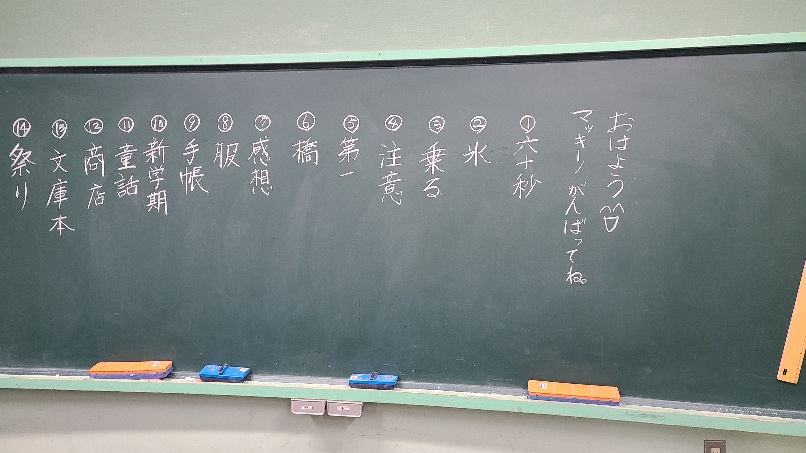 おはよう^^
マッキーノがんばってね。
①六十秒
②氷
③乗る
④注意
⑤第一
⑥橋
⑦感想
⑧服
⑨手帳
⑩新学期
⑪童話
⑫商店
⑬文庫本
⑭祭り